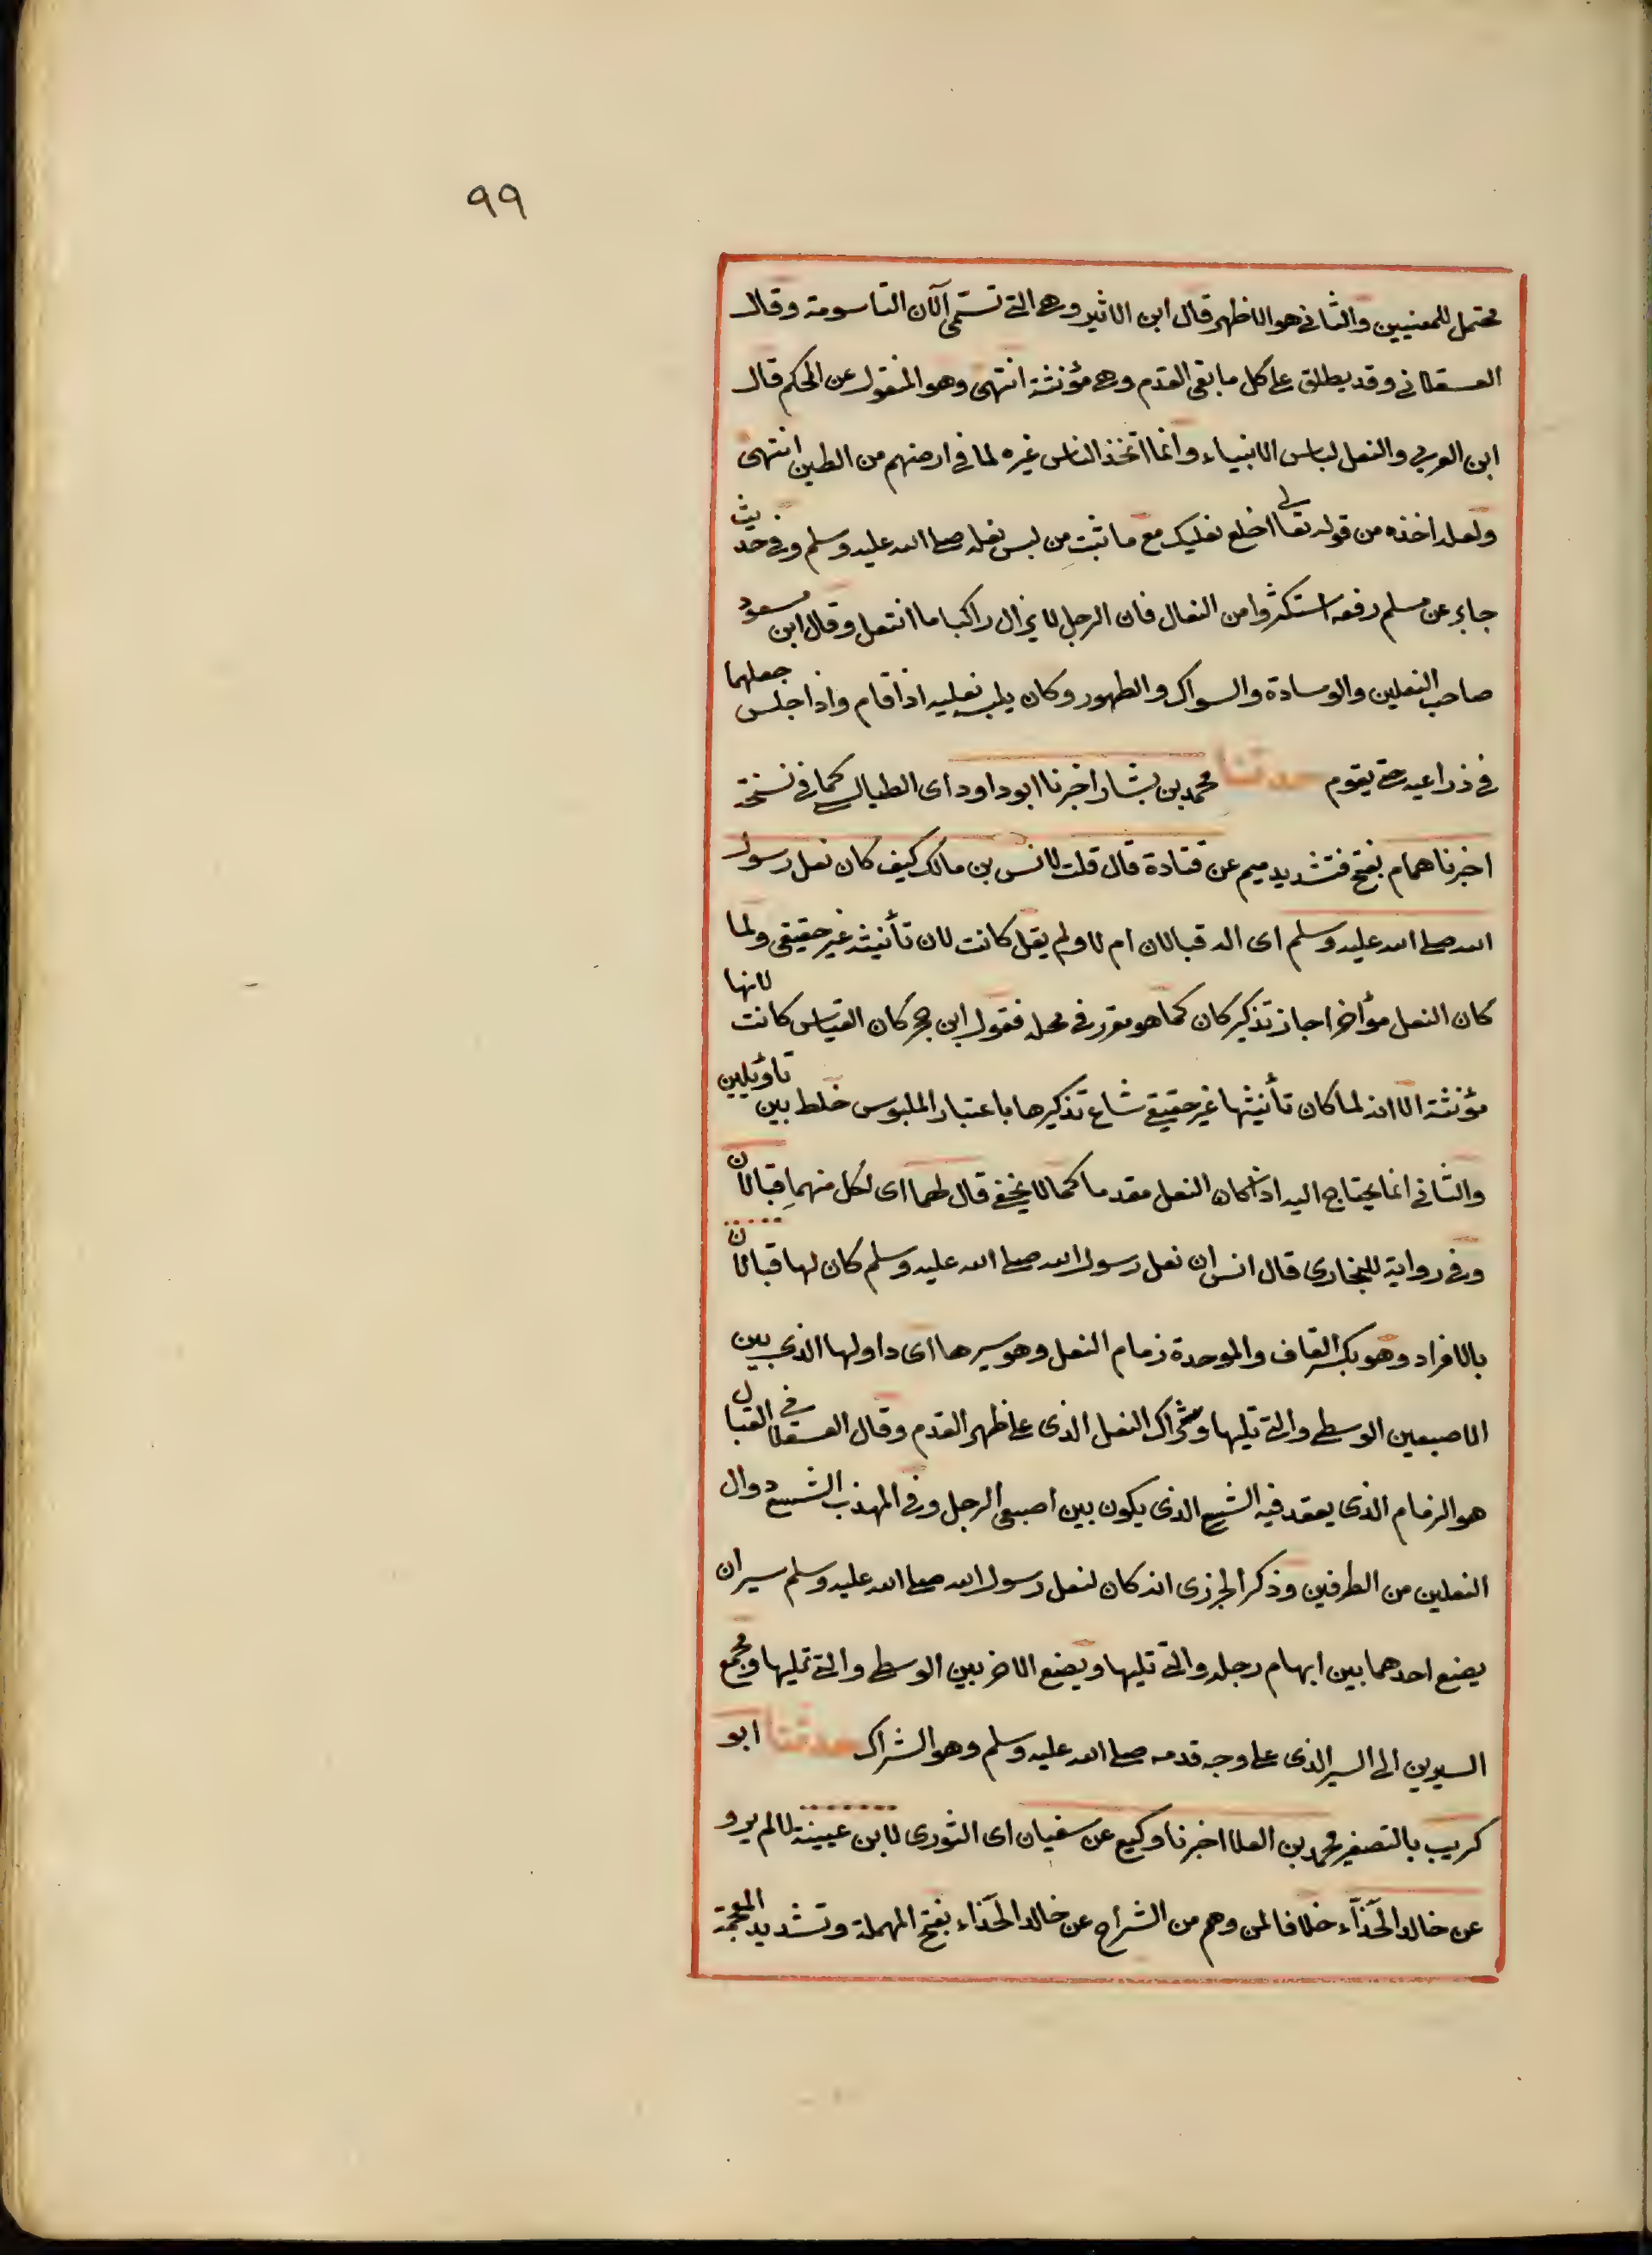 ٩٩
محتمل للمعنيين والثاني هو الاظهر قال ابن الاثير وهى التي تسمى الآن التاسومة وقال
العسقلاني وقد يطلق على كل ما يقى القدم وهى مؤنثة انتهى وهو المنقول عن المحكم قال
ابن العربي والنعل لباس الانبياء وانما اتخذ الناس غيره لما في ارضهم من الطين انتهى
ولعله اخذه من قوله تعالى اخلع نعليك مع ما ثبت من لبس نعله صلى الله عليه وسلم وفي حديث
جابر عن مسلم رفعه استكثروا من النعال فان الرجل لا يزال راكبا ما انتعل وقال ابن مسعود
صاحب النعلين والوسادة والسواك والطهور وكان يلبسه نعليه اذا قام واذا جلس جعلهما
في ذراعيه حتى يقوم حدثنا محمد بن بشار اخبرنا ابو داود اى الطيالسي كما في نسخة
اخبرنا همام بفتح فتشديد ميم عن قتادة قال قلت لانس بن مالك كيف كان نعل رسول
الله صلى الله عليه وسلم اى اله قبالان ام لا ولم يقل كانت لان تأنيثه غير حقيقى ولما
كان النعل مؤخرا جاز تذكير كان كما هو مقرر في محله فقول ابن حجر كان القياس كانت لانها
مؤنثة الا انه لما كان تأنيثها غير حقيقى شاع تذكيرها باعتبار الملبوس خلط بين تاويلين
والثاني انما يحتاج اليه اذا كان النعل مقدما كما لا يخفى قال لهما اى لكل منهما قبالان
وفي رواية للبخارى قال انس ان نعل رسول الله صلى الله عليه وسلم كان لها قبالان
بالافراد وهو بكسر القاف والموحدة زمام النعل وهو سيرها اى دوالها الذي بين
الاصبعين الوسطى والتي تليها وشراك النعل الذى على ظهر القدم وقال العسقلاني القبال
هو الزمام الذى يعقد فيه الشسع الذى يكون بين اصبعى الرجل وفي المهذب الشسع دوال
النعلين من الطرفين وذكر الجزرى انه كان لنعل رسول الله صلى الله عليه وسلم سيران
يضع احدهما بين ابهام رجله والتي تليها ويضع الاخر بين الوسطى والتي تليها ومجمع
السيرين الى السير الذى على وجه قدمه صلى الله عليه وسلم وهو الشراك حدثنا ابو
كريب بالتصغير محمد بن العلا اخبرنا وكيع عن سفيان اى الثورى لا ابن عيينة لانه لم يرو
عن خالد الحذّاء خلافا لمن وهم من الشراح عن خالد الحذاء بفتح المهملة وتشديد المعجمة